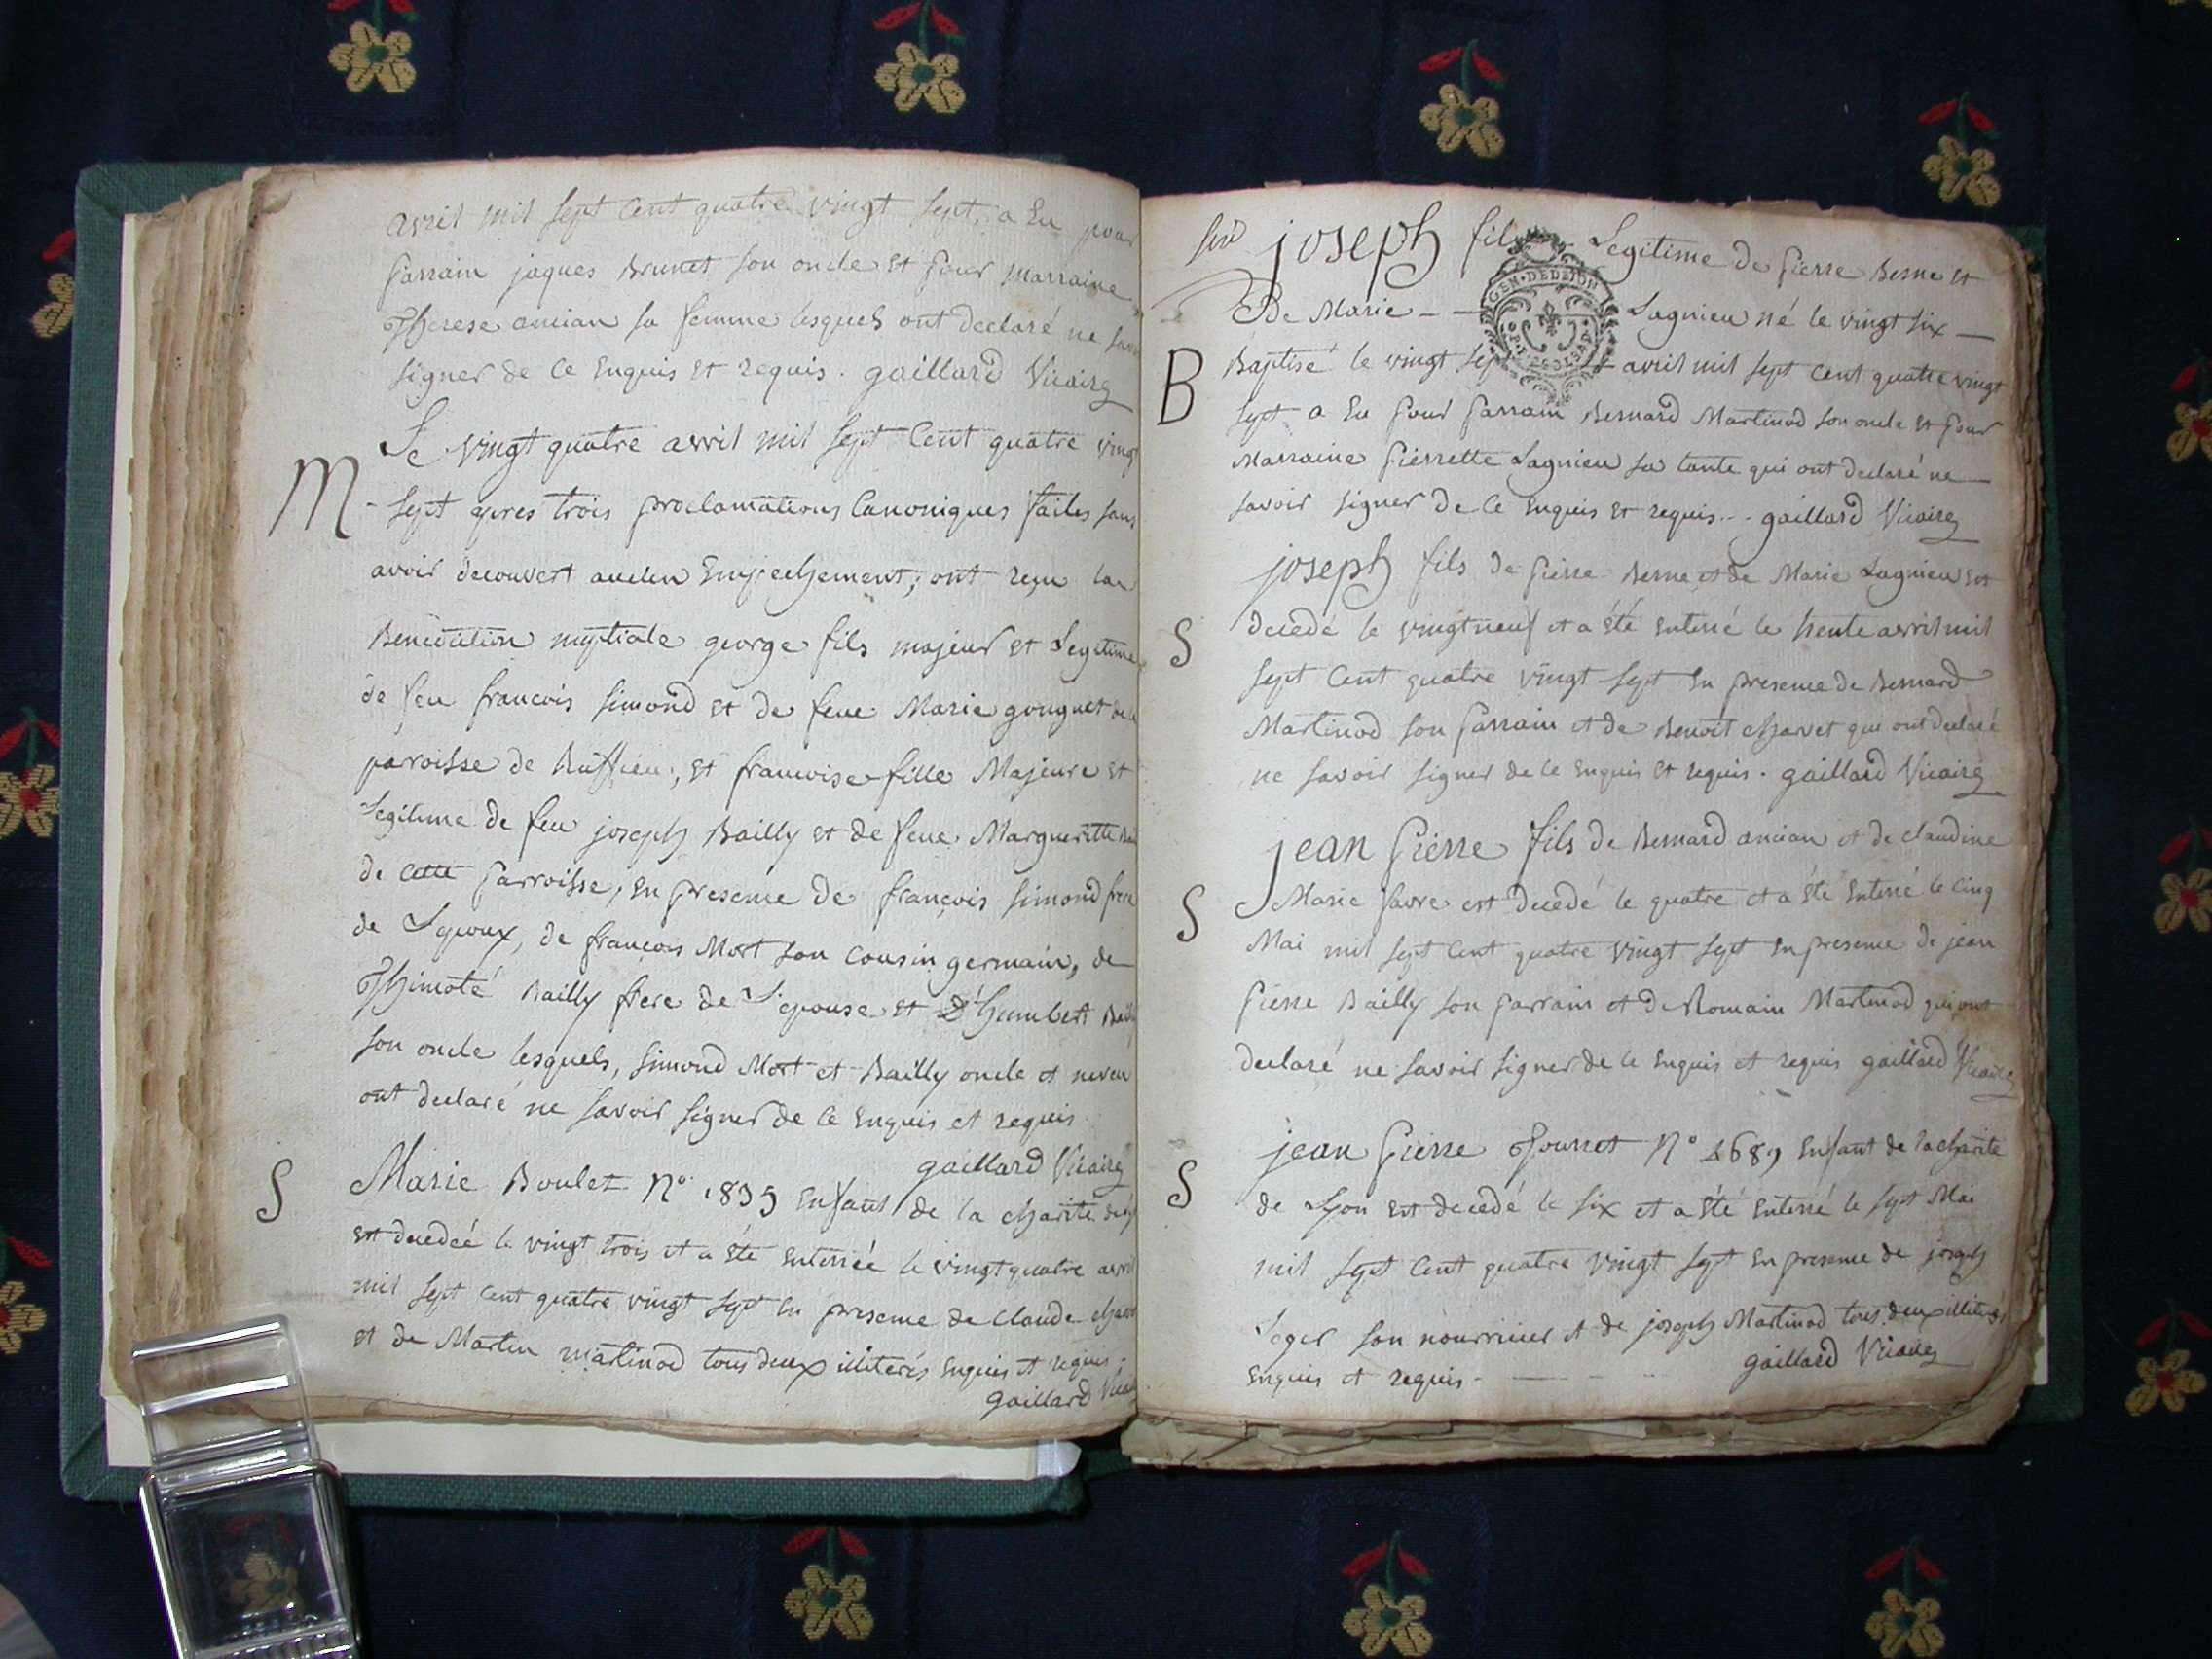 avril mil sept cent quatre vingt sept, a Eu pour
parrain jaques Brunet son oncle et pour marraine
Therese ancian sa femme lesquels ont declaré ne
signer de ce Enquis et requis. gaillard Vicaire
M
Le vingt quatre avril mil sept Cent quatre vingt
sept apres trois proclamations Canoniques faites sans
avoir decouvert aucun Empechement, ont reçu la
Benediction nuptiale george fils majeur et Legitime
de feu francois simond et de feue Marie gouguet
paroisse de Ruffieu, et francoise fille Majeure et
Legitime de feu joseph Bailly et de feue Margueritte
de cette parroisse, en presence de françois simond frere
de L'epoux, de françois Mort son cousin germain, de
Thimoté Bailly frere de L'epouse et d'humbert
son oncle lesquels, simond Mort et Bailly oncle et neveu
ont declaré ne savoir signer de ce Enquis et requis
gaillard Vicaire
S
Marie Boulet N° 1835 Enfant de la charité
est decedée le vingt trois et a été enterrée le vingt quatre avril
mil sept cent quatre vingt sept en presence de Claude
et de Martin martinod tous deux illiterés Enquis et requis.
gaillard
joseph fils Legitime de pierre Berne et
De Marie - - Lagnieu né le vingt six —
B
Baptisé le vingt sept avril mil sept cent quatre vingt
sept a Eu pour parrain Bernard Martinod son oncle et pour
Marraine pierrette Lagnieu sa tante qui ont declaré ne
savoir signer de ce Enquis et requis... gaillard Vicaire
joseph fils de pierre Berne et de Marie Lagnieu est
S
decedé le vingt neuf et a été enterré le trente avril mil
sept Cent quatre vingt sept en presence de Bernard
Martinod son parrain et de Benoit charvet qui ont declaré
ne savoir signer de ce enquis et requis. gaillard Vicaire
jean pierre fils de Bernard ancian et de claudine
S
Marie favre est decedé le quatre et a été Enterré le cinq
Mai mil sept cent quatre vingt sept en presence de jean
pierre Bailly son parrain et de Romain Martinod qui ont
declaré ne savoir signer de ce Enquis et requis gaillard Vicaire
jean pierre N° Enfant de la charité
S
de Lyon est decedé le six et a été enterré le sept Mai
mil sept cent quatre vingt sept en presence de joseph
Leger son nourricier et de joseph Martinod tous deux illiterés
Enquis et requis - gaillard Vicaire